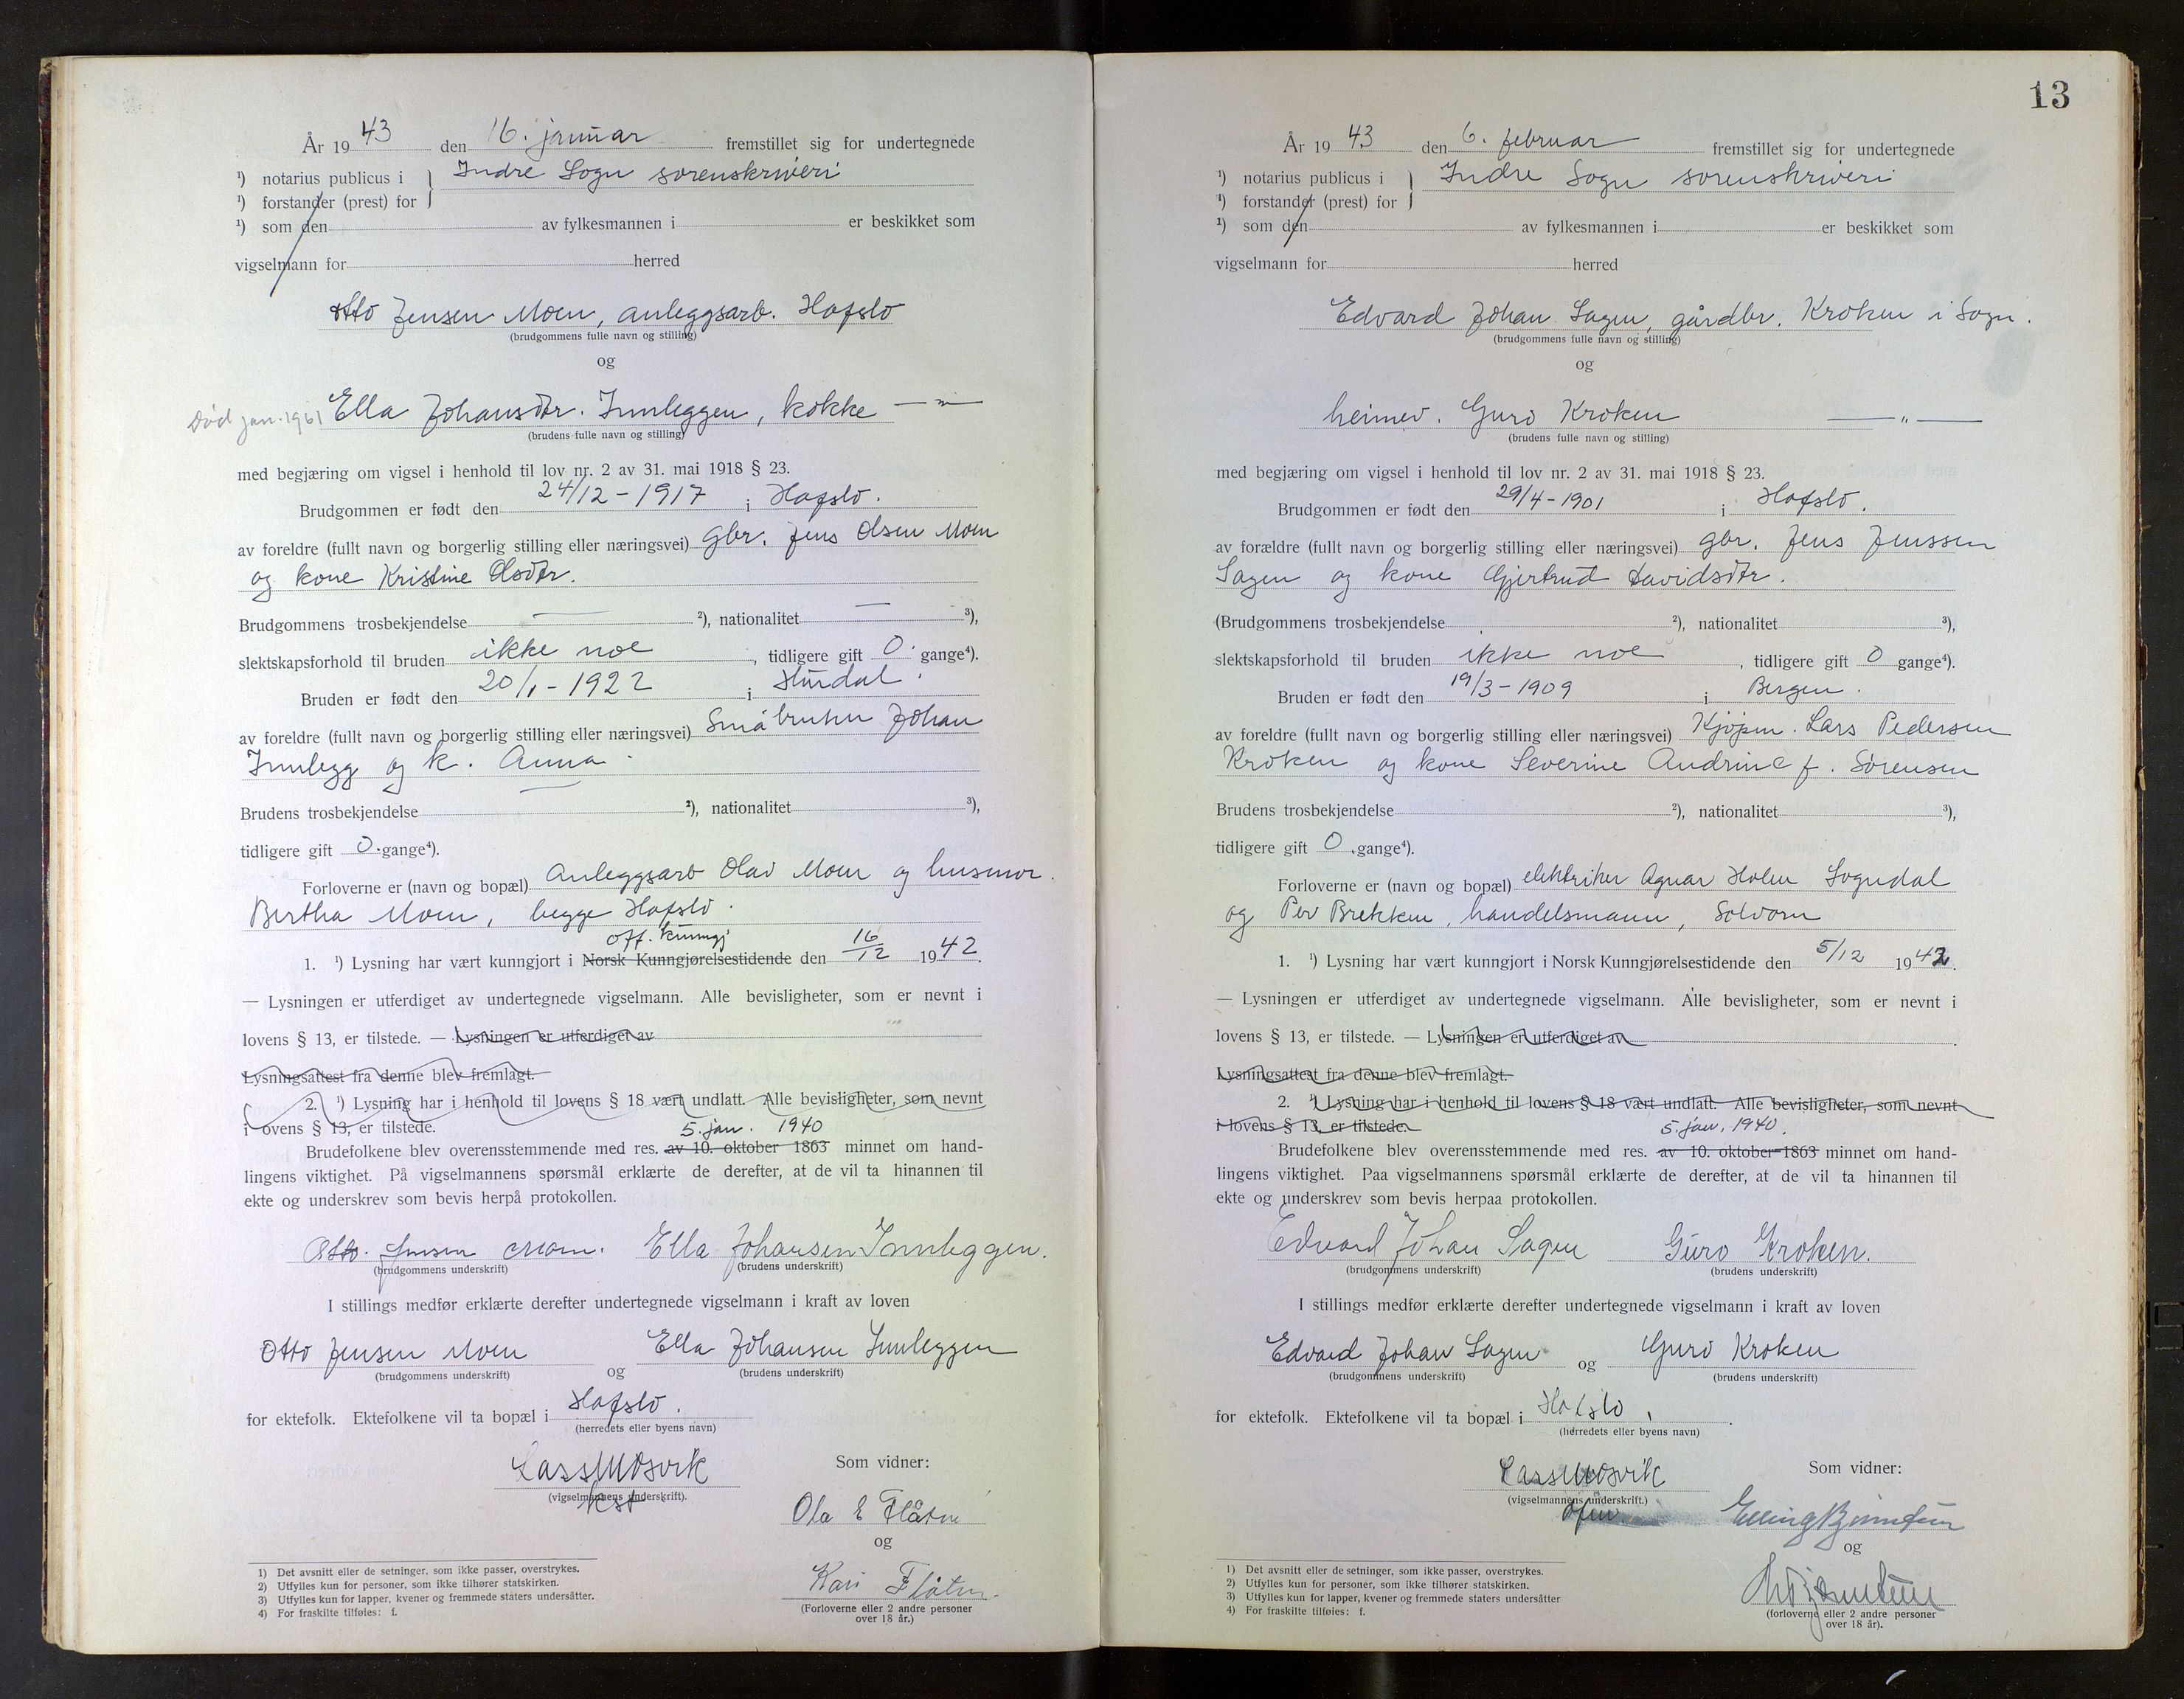 År 1943 den 16. januar fremstillet sig for undertegnede
¹) notarius publicus i } Indre Sogn sorenskriveri
¹) forstander (prest) for
¹) som den av fylkesmannen i er beskikket som
vigselmann for herred
Otto Jensen Moen, anleggsarb. Hafslo
(brudgommens fulle navn og stilling)
og
Død jan. 1961 Ella Johansdtr. Innleggen, kokke — " —
(brudens fulle navn og stilling)
med begjæring om vigsel i henhold til lov nr. 2 av 31. mai 1918 § 23.
Brudgommen er født den 24/12 - 1917 i Hafslo.
av foreldre (fullt navn og borgerlig stilling eller næringsvei) gbr. Jens Olsen Moen
og kone Kristine Olsdtr.
Brudgommens trosbekjendelse — ²), nationalitet — ³),
slektskapsforhold til bruden ikke noe, tidligere gift 0. gange⁴).
Bruden er født den 20/1 - 1922 i Hurdal.
av foreldre (fullt navn og borgerlig stilling eller næringsvei) Småbruker Johan
Innlegg og k. Anna.
Brudens trosbekjendelse — ²), nationalitet ³),
tidligere gift 0. gange⁴).
Forloverne er (navn og bopæl) Anleggsarb Olav Moen og husmor.
Bertha Moen, begge Hafslo.
off. kunngj
1. ¹) Lysning har vært kunngjort i Norsk Kunngjørelsestidende den 16/12 1942.
— Lysningen er utferdiget av undertegnede vigselmann. Alle bevisligheter, som er nevnt i
lovens § 13, er tilstede. — Lysningen er utferdiget av
Lysningsattest fra denne blev fremlagt.
2. ¹) Lysning har i henhold til lovens § 18 vært undlatt. Alle bevisligheter, som nevnt
i lovens § 13, er tilstede. 5. jan. 1940
Brudefolkene blev overensstemmende med res. av 10. oktober 1863 minnet om hand-
lingens viktighet. På vigselmannens spørsmål erklærte de derefter, at de vil ta hinannen til
ekte og underskrev som bevis herpå protokollen.
Otto. Jensen Moen. Ella Johansen Innleggen.
(brudgommens underskrift) (brudens underskrift)
I stillings medfør erklærte derefter undertegnede vigselmann i kraft av loven
Otto Jensen Moen og Ella Johansen Innleggen
(brudgommens underskrift) (brudens underskrift)
for ektefolk. Ektefolkene vil ta bopæl i Hafslo.
(herredets eller byens navn)
Som vidner:
(vigselmannens underskrift).
kst
Ola E Flåtn
og
Kari Flåtn
(Forloverne eller 2 andre personer
over 18 år.)
1) Det avsnitt eller de setninger, som ikke passer, overstrykes.
2) Utfylles kun for personer, som ikke tilhører statskirken.
3) Utfylles kun for lapper, kvener og fremmede staters undersåtter.
4) For fraskilte tilføies: f.
13
År 1943 den 6. februar fremstillet sig for undertegnede
¹) notarius publicus i } Indre Sogn sorenskriveri
¹) forstander (prest) for
¹) som den av fylkesmannen i er beskikket som
vigselmann for herred
Edvard Johan Sagen, gårdbr. Kroken i Sogn.
(brudgommens fulle navn og stilling)
og
heimev. Guro Kroken — " —
(brudens fulle navn og stilling)
med begjæring om vigsel i henhold til lov nr. 2 av 31. mai 1918 § 23.
Brudgommen er født den 29/4 - 1901 i Hafslo.
av forældre (fullt navn og borgerlig stilling eller næringsvei) gbr. Jens Jenssen
Sagen og kone Gjertrud Davidsdtr.
(Brudgommens trosbekjendelse ²), nationalitet ³),
slektskapsforhold til bruden ikke noe, tidligere gift 0 gange⁴).
Bruden er født den 19/3 - 1909 i Bergen.
av foreldre (fullt navn og borgerlig stilling eller næringsvei) Kjøpm. Lars Pedersen
Kroken og kone Severine Andrine f. Sørensen
Brudens trosbekjendelse ²), nationalitet ³),
tidligere gift 0. gange⁴).
Forloverne er (navn og bopæl) elektriker Agnar Holen Sogndal
og Per Brekken, handelsmann, Solvorn
1. ¹) Lysning har vært kunngjort i Norsk Kunngjørelsestidende den 5/12 1942.
— Lysningen er utferdiget av undertegnede vigselmann. Alle bevisligheter, som er nevnt i
lovens § 13, er tilstede. — Lysningen er utferdiget av
Lysningsattest fra denne blev fremlagt.
2. ¹) Lysning har i henhold til lovens § 18 vært undlatt. Alle bevisligheter, som nevnt
i lovens § 13, er tilstede. 5. jan. 1940.
Brudefolkene blev overensstemmende med res. av 10. oktober 1863 minnet om hand-
lingens viktighet. Paa vigselmannens spørsmål erklærte de derefter, at de vil ta hinannen til
ekte og underskrev som bevis herpaa protokollen.
Edvard Johan Sagen Guro Kroken.
(brudgommens underskrift) (brudens underskrift)
I stillings medfør erklærte derefter undertegnede vigselmann i kraft av loven
Edvard Johan Sagen og Guro Kroken
(brudgommens underskrift) (brudens underskrift)
for ektefolk. Ektefolkene vil ta bopæl i Hafslo.
(herredets eller byens navn)
Som vidner:
(vigselmannens underskrift.)
og
(forloverne eller 2 andre personer
over 18 år).
1) Det avsnitt eller de setninger, som ikke passer, overstrykes.
2) Utfylles kun for personer, som ikke tilhører statskirken.
3) Utfylles kun for lapper, kvener og fremmede staters undersåtter
4) For fraskilte tilføies: f.